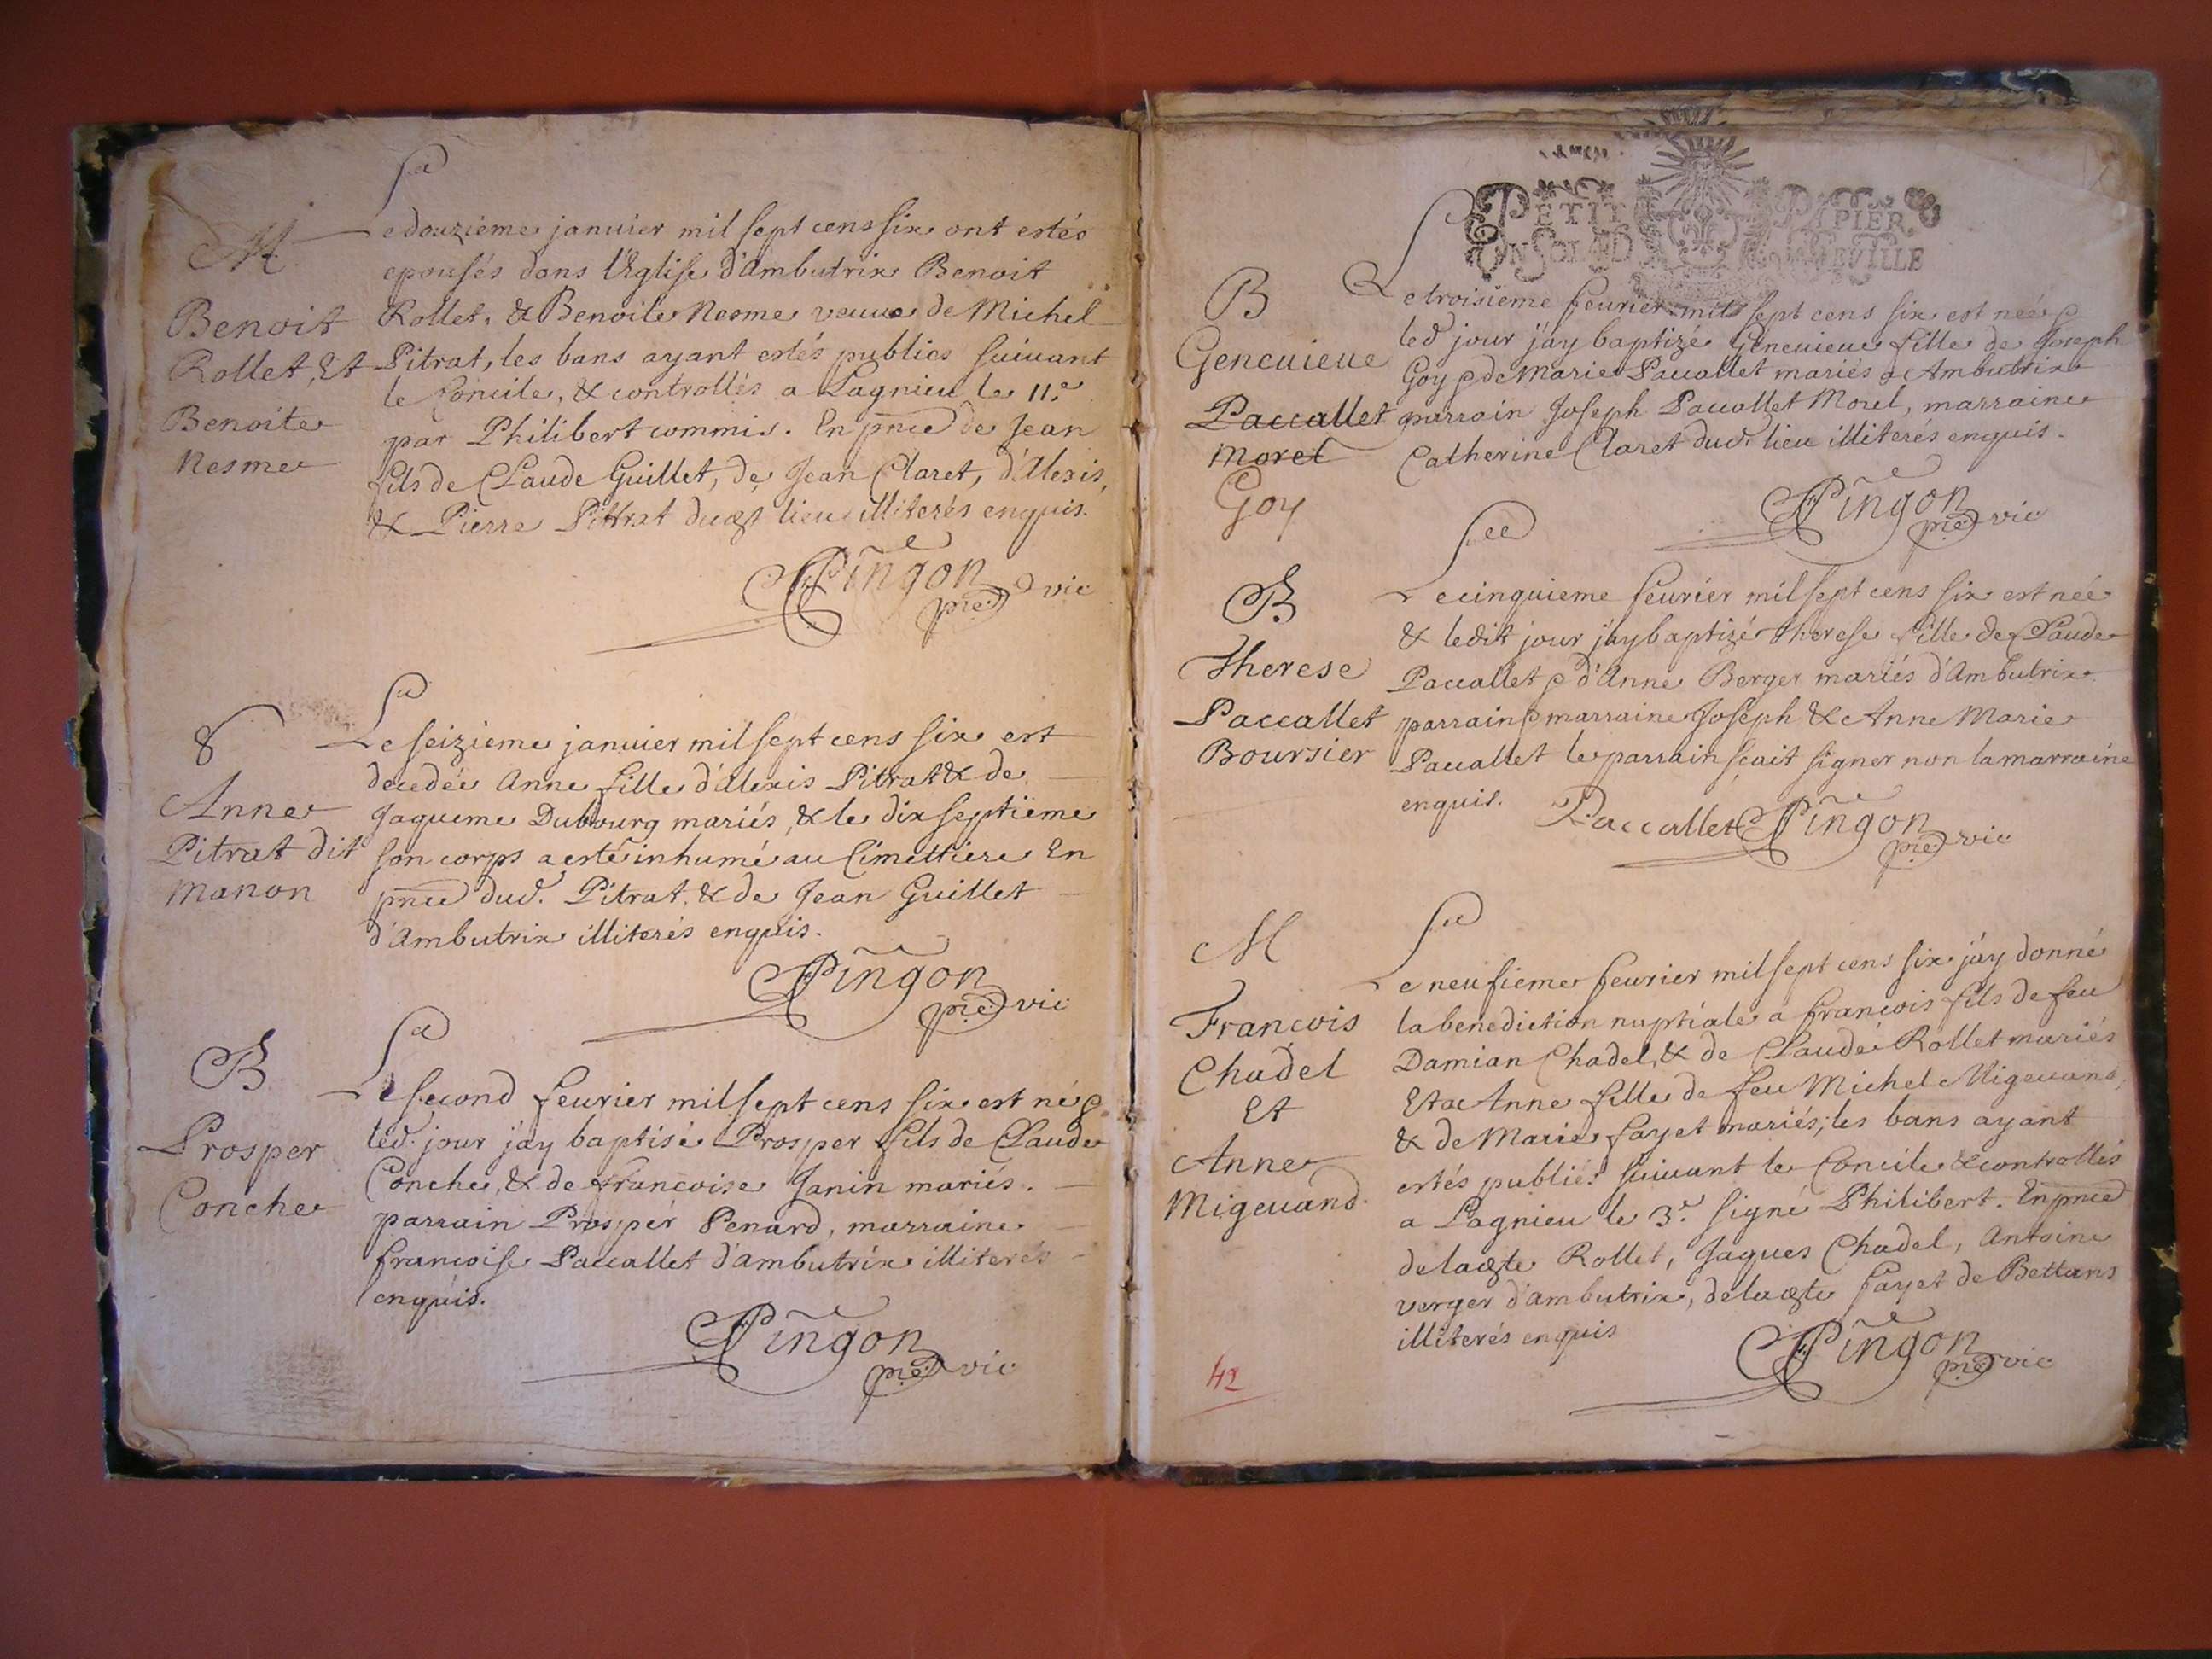 M
Benoit
Rollet, Et
Benoite
Nesme
Le douzieme januier mil sept cens six ont estés
epousés dans l'Eglise d'Ambutrix Benoit
Rollet, & Benoite Nesme veuue de Michel
Pitrat, les bans ayant estés publies suiuant
le Concile, & controllés a Lagnieu le 11e
par Philibert commis. En pnce de Jean
fils de Claude Guillet, de Jean Claret, d'Alexis,
& Pierre Pittrat lieu illiterés enquis.
Pingon
pre vic
8
Anne
Pitrat dit
Manon
Le seizieme januier mil sept cens six est
decedée Anne fille d'Alexis Pitrat & de
Jaqueme Dubourg mariés, & le dix septieme
son corps a esté inhumé au Cimettiere En
pnce dud. Pitrat, & de Jean Guillet
d'Ambutrix illiterés enquis.
Pingon
pre vic
B
Prosper
Conche
Le second feurier mil sept cens six est né &
led. jour j'ay baptisé Prosper fils de Claude
Conche, & de francoise Janin mariés.
parrain Prosper Penard, marraine
francoise Paccallet d'ambutrix illiterés
enquis.
Pingon
pre vic
PETIT PAPIER
B
Geneuieue
Paccallet
Morel
Goy
Le troisieme feurier mil sept cens six est née &
led jour j'ay baptizé Geneuieue fille de Joseph
Goy & de Marie Paccallet mariés d'Ambutrix
parrain Joseph Paccallet Morel, marraine
Catherine Claret dud. lieu illiterés enquis.
Pingon
pre vic
B
Therese
Paccallet
Boursier
Le cinquieme feurier mil sept cens six est née
& ledit jour j'ay baptizé Therese fille de Claude
Paccallet & d'Anne Berger mariés d'Ambutrix
parrain & marraine Joseph & Anne Marie
Paccallet le parrain sçait signer non la marraine
enquis.
Paccallet Pingon
pre vic
M
François
Chadel
Et
Anne
Migeuand
Le neufieme feurier mil sept cens six j'ay donné
la benediction nuptiale a francois fils de feu
Damian Chadel, & de Claude Rollet mariés
Et a Anne fille de feu Michel Migeuand,
& de Marie fayet mariés; les bans ayant
estés publiés suiuant le Concile & controllés
a Lagnieu le 3e signé Philibert. En pnce
Rollet, Jaques Chadel, Antoine
verger d'ambutrix, fayet de Bettans
illiterés enquis
Pingon
pre vic
42